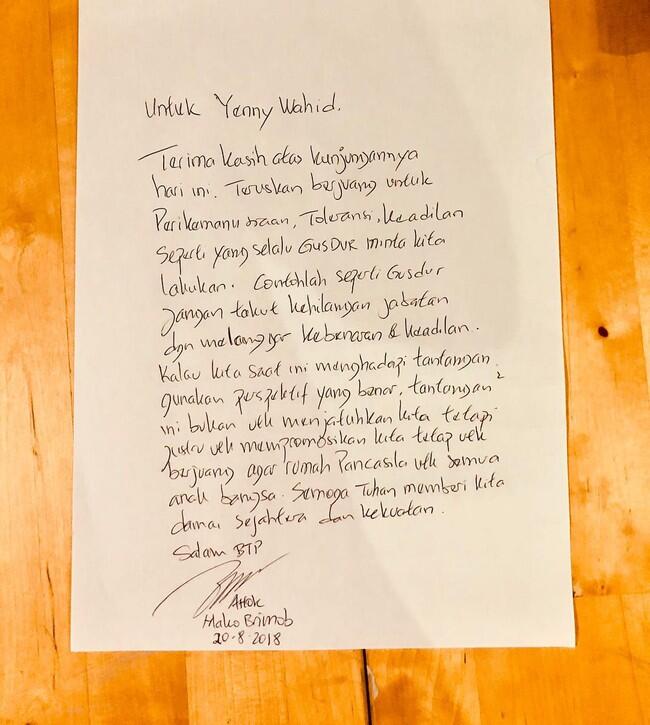 Untuk Yenny Wahid.
Terima kasih atas kunjungannya
hari ini. Teruskan berjuang untuk
Perikemanusiaan, Toleransi, keadilan
seperti yang selalu GUSDUR minta kita
lakukan. Contohlah seperti Gusdur
jangan takut kehilangan jabatan
dgn melanggar kebenaran & keadilan.
Kalau kita saat ini menghadapi tantangan.
gunakan perspektif yang benar, tantangan²
ini bukan utk menjatuhkan kita tetapi
justru utk mempromosikan kita tetap utk
berjuang agar rumah Pancasila utk semua
anak bangsa. Semoga Tuhan memberi kita
damai sejahtera dan kekuatan.
Salam BTP
AHok
Mako Brimob
20-8-2018